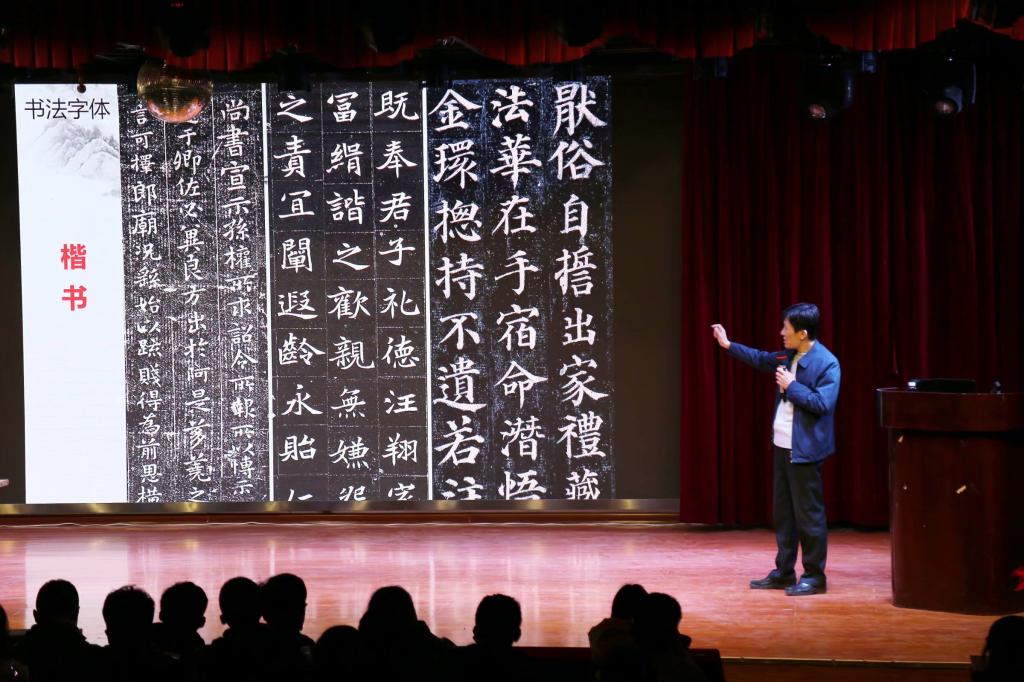 书法字体
楷书
尚書宣示孫權所求詔令所報所以博示
于卿佐必冀良方出於阿是芻蕘之
言可擇郎廟況繇始以疏賤得為前恩橫
既奉君子礼德汪翔
冨絹諧之歡親無嫌
之責宜闡遐齡永貽
厭俗自誓出家禮藏
法華在手宿命潛悟
金環揔持不遺若注